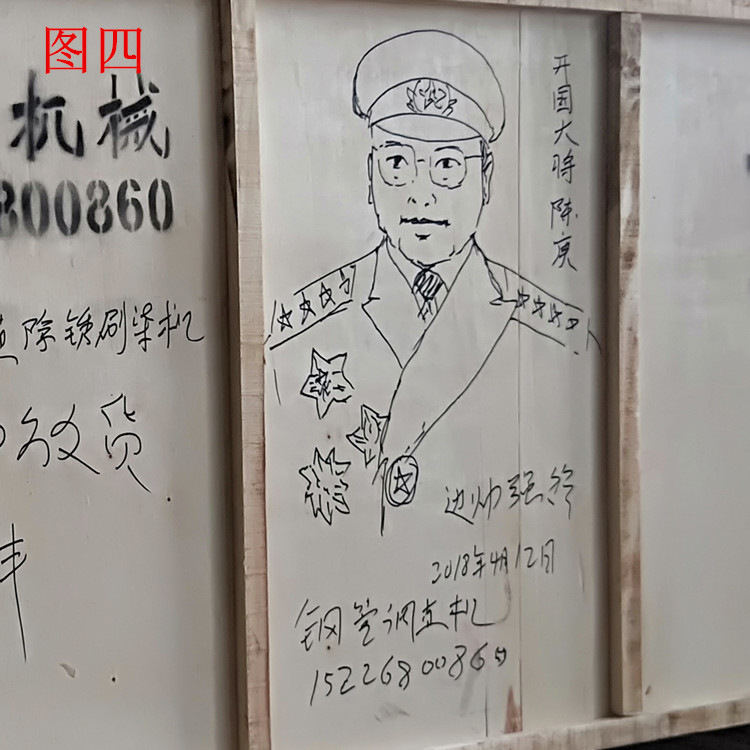 图四
机械
800860
除锈刷漆机
发货
开国大将陈赓
边帅强绘
2018年4月12日
钢管调直机
15226800860